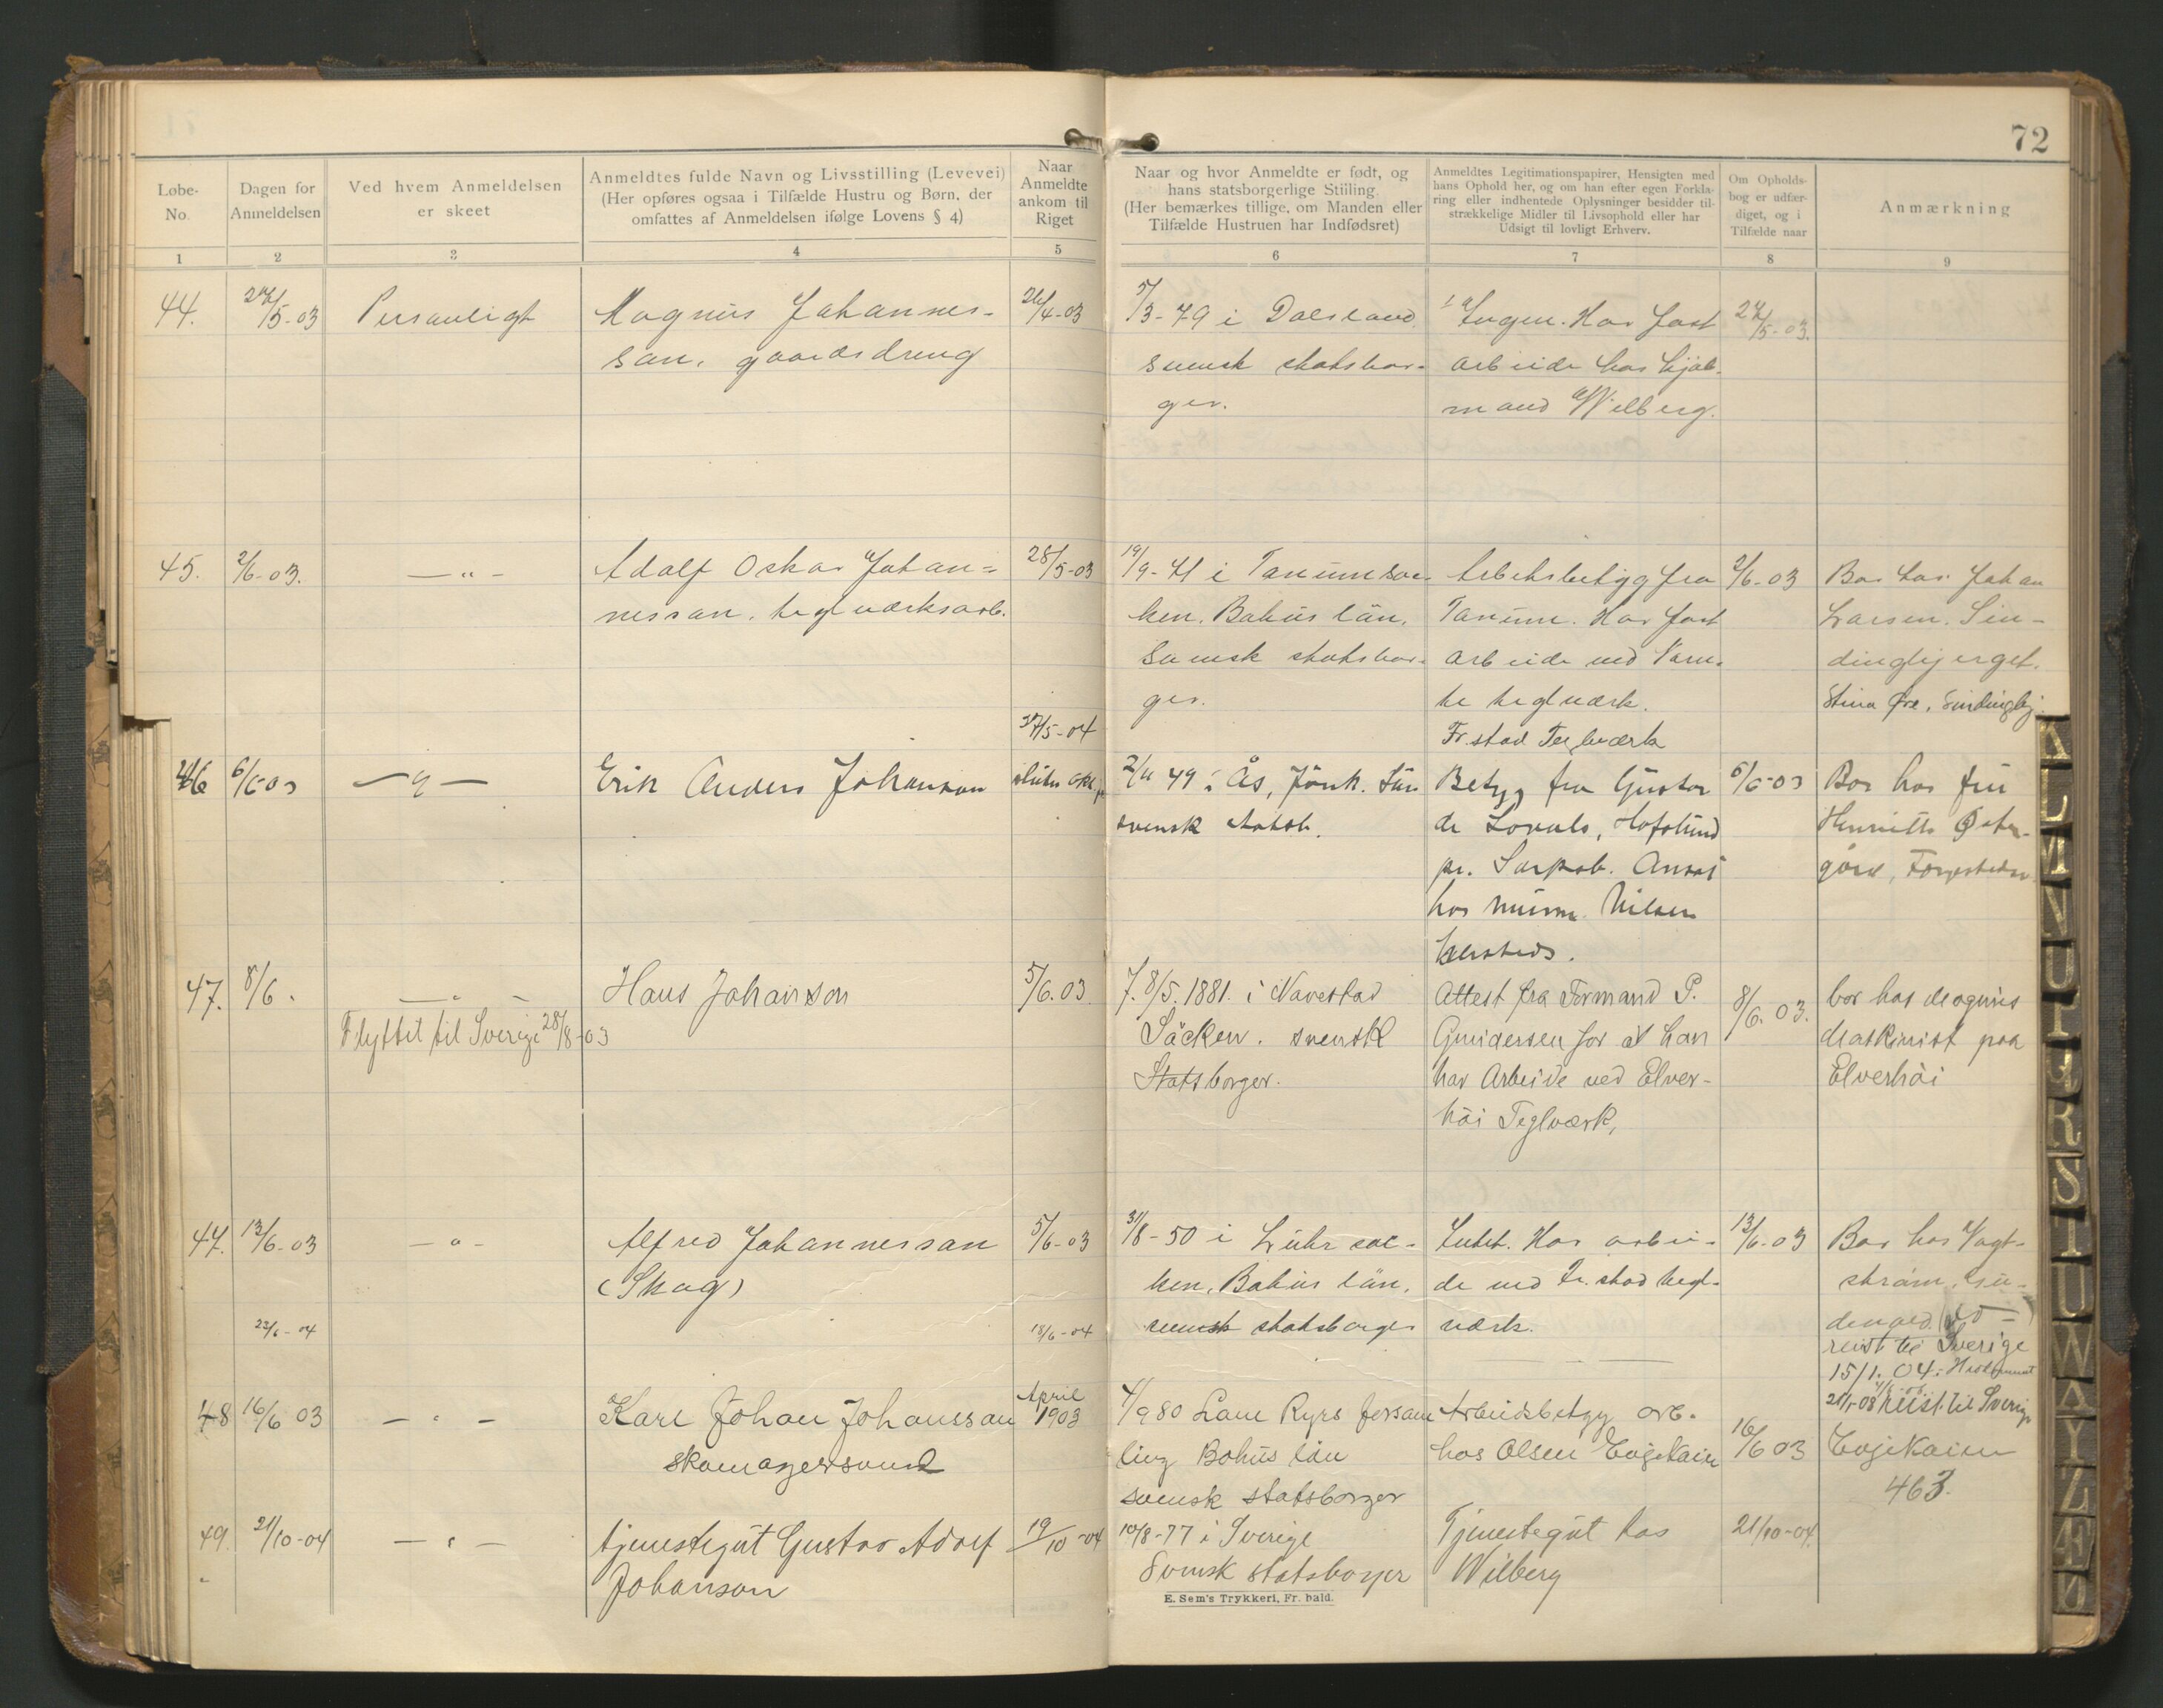 72
Løbe-
No.
Dagen for
Anmeldelsen
Ved hvem Anmeldelsen
er skeet
Anmeldtes fulde Navn og Livsstilling (Levevei)
(Her opføres ogsaa i Tilfælde Hustru og Børn, der
omfattes af Anmeldelsen ifølge Lovens § 4)
Naar
Anmeldte
ankom til
Riget
Naar og hvor Anmeldte er født, og
hans statsborgerlige Stilling.
(Her bemærkes tillige, om Manden eller
Tilfælde Hustruen har Indfødsret)
Anmeldtes Legitimationspapirer, Hensigten med
hans Ophold her, og om han efter egen Forkla-
ring eller indhentede Oplysninger besidder til-
strækkelige Midler til Livsophold eller har
Udsigt til lovligt Erhverv.
Om Opholds-
bog er udfær-
diget, og i
Tilfælde naar
Anmærkning
1 2 3 4 5 6 7 8 9
44.
27/5-03
Personligt
Magnus Johannes-
son. gaardsdreng
26/4-03
5/3-79 i Dalsland
svensk statsbor-
ger.
Ingen. Har fast
arbeide hos Hjal-
mand Wilberg.
27/5-03.
45.
2/6-03.
— " —
Adolf Oskar Johan-
nesson. teglværksarb.
28/5-03
27/5-04
19/9-41 i Tanum soc-
ken. Bahus län.
Svensk statsbor-
ger.
Arbetsbetyg fra
Tanum. Har fast
arbeide ved
teglværk.
Fr.stad Teglværk
2/6-03
Bor hos Johan
Larsen. Sin-
dingbjerget.
Stina Øre, Sindingbj.
46
6/6-03
— " —
Erik Anders Johanson
2/11 49 i Ås, Jönk. Län
svensk statsb.
Betyg fra Gustav
de Lorals, Hafslund
pr. Sarpsb. Ansat
hos murm. Nilsen
6/6-03
Bor hos fru
Henriette Øster-
gård,
47.
8/6.
— " —
Flyttet til Sverige 28/8-03
Hans Johanson
5/6.03
7. 8/5.1881. i Navestad
Säcken. svensk
Statsborger.
Attest fra Formand P.
Gundersen for at han
har Arbeide ved Elver-
höi Teglværk,
8/6.03.
bor hos Magnus
Maskinist paa
Elverhöi
47.
13/6-03
— " —
Alfred Johannesson
(Skog)
5/6-03
23/6-04
18/6-04
31/8-50 i Luhr soc-
ken. Bahus län.
svensk statsborger
Intet. Har arbei-
de ved Fr.stad tegl-
værk.
13/6-03
Bor hos Vagt-
strøm.
reist til Sverige
15/1. 04.
21/1-08 reist til Sverige
48
16/6 03
— " —
Karl Johan Johansson
skomagersvend
April
1903
4/9 80 Lane Ryrs forsam
ling Bohus län
svensk statsborger
Arbeidsbetyg arb.
hos Olsen Engekaien
16/6 03
Engekaien
463.
49.
21/10-04
— " —
tjenestegut Gustav Adolf
Johanson
19/10-04
10/8-77 i Sverige
Svensk statsborger
Tjenestegut hos
Wilberg
21/10-04.
E. Sem's Trykkeri, Fr. hald.
L
M
N
U
P
R
S
T
U
W
Y
Z
Æ
Ø